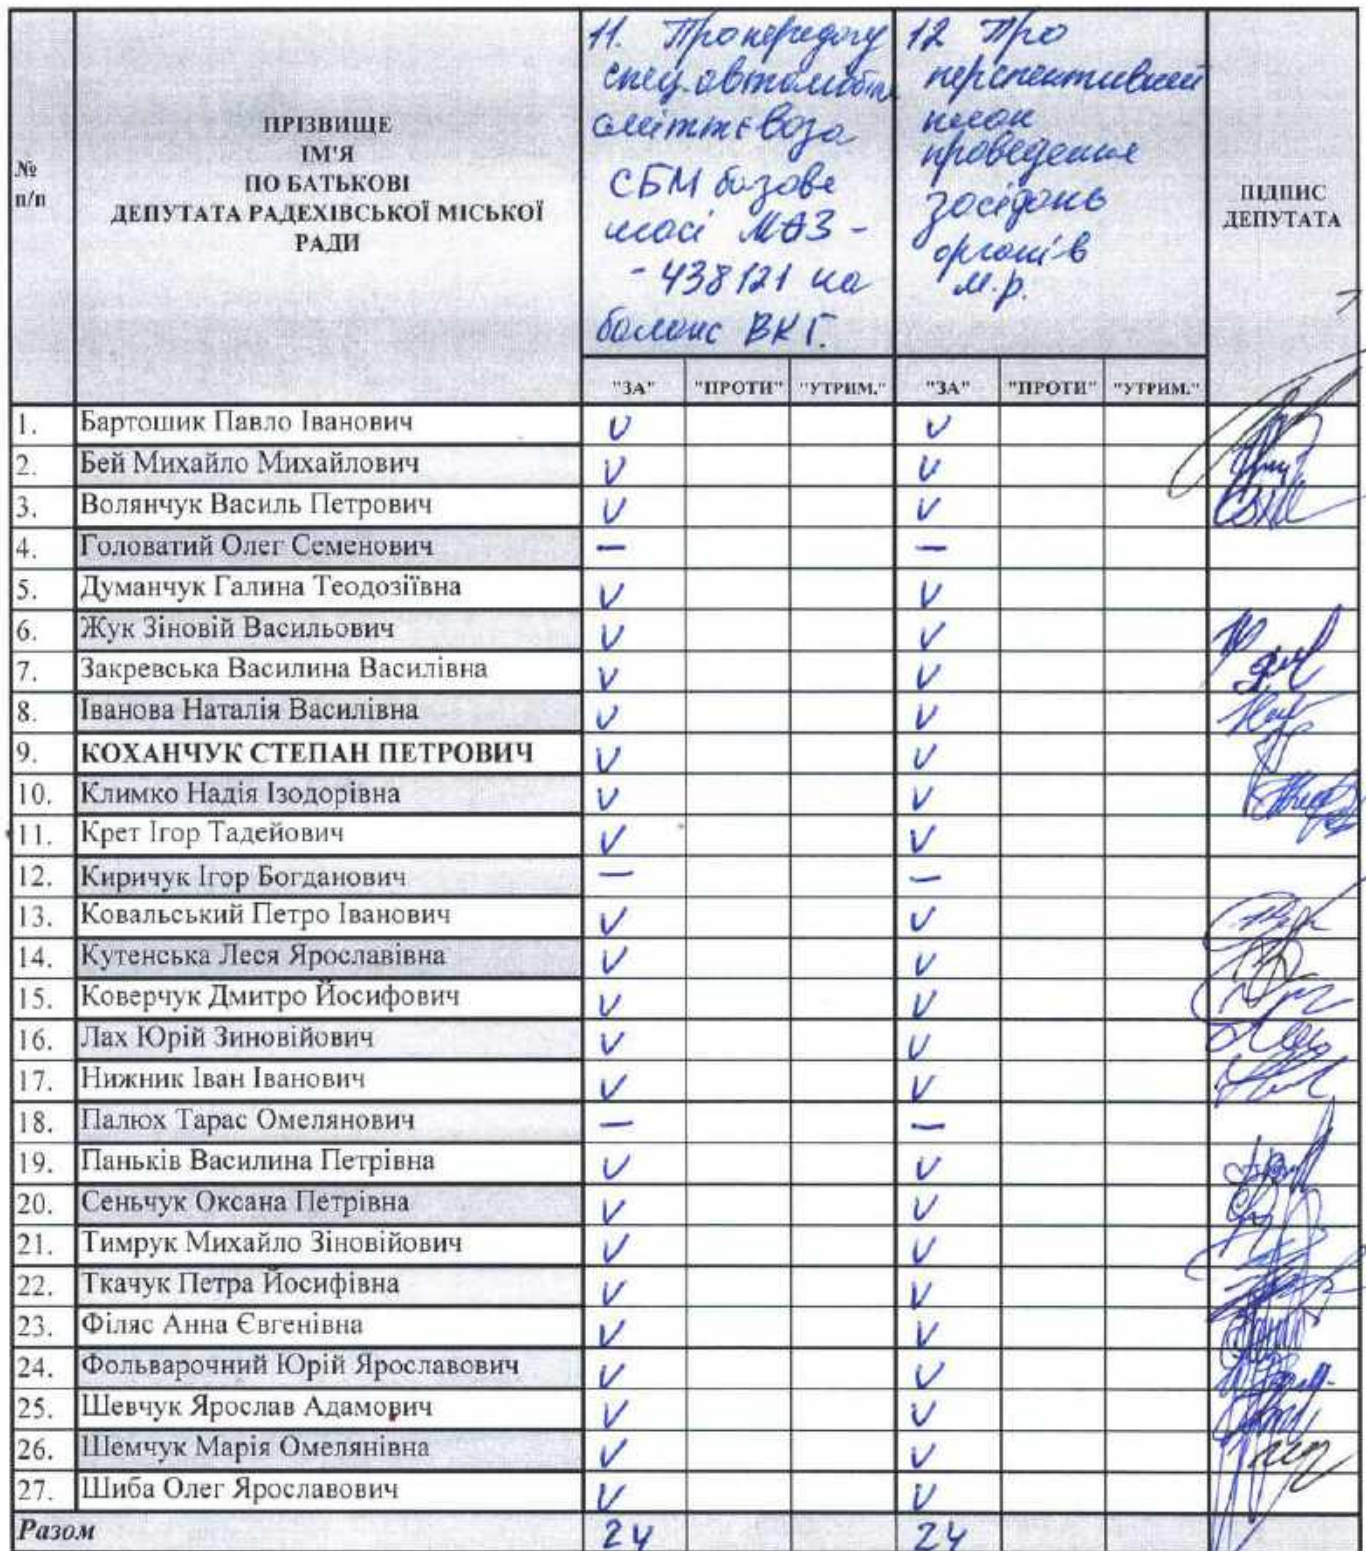 №
п/п
ПРІЗВИЩЕ
ІМ'Я
ПО БАТЬКОВІ
ДЕПУТАТА РАДЕХІВСЬКОЇ МІСЬКОЇ
РАДИ
11. Про передачу
спец.автомобіля
сміттєвоза
СБМ базове
шасі МАЗ -
- 438121 на
баланс ВКГ.
12 Про
перспективний
план
проведення
засідань
органів
м.р.
ПІДПИС
ДЕПУТАТА
"ЗА" "ПРОТИ" "УТРИМ." "ЗА" "ПРОТИ" "УТРИМ."
1. Бартошик Павло Іванович V V
2. Бей Михайло Михайлович V V
3. Волянчук Василь Петрович V V
4. Головатий Олег Семенович — —
5. Думанчук Галина Теодозіївна V V
6. Жук Зіновій Васильович V V
7. Закревська Василина Василівна V V
8. Іванова Наталія Василівна V V
9. КОХАНЧУК СТЕПАН ПЕТРОВИЧ V V
10. Климко Надія Ізодорівна V V
11. Крет Ігор Тадейович V V
12. Киричук Ігор Богданович — —
13. Ковальський Петро Іванович V V
14. Кутенська Леся Ярославівна V V
15. Коверчук Дмитро Йосифович V V
16. Лах Юрій Зиновійович V V
17. Нижник Іван Іванович V V
18. Палюх Тарас Омелянович — —
19. Паньків Василина Петрівна V V
20. Сеньчук Оксана Петрівна V V
21. Тимрук Михайло Зіновійович V V
22. Ткачук Петра Йосифівна V V
23. Філяс Анна Євгенівна V V
24. Фольварочний Юрій Ярославович V V
25. Шевчук Ярослав Адамович V V
26. Шемчук Марія Омелянівна V V
27. Шиба Олег Ярославович V V
Разом 24 24